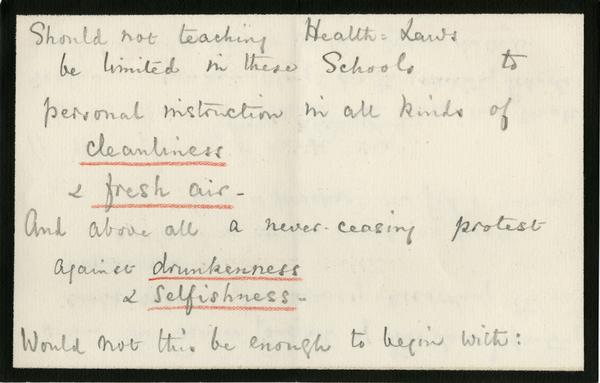 Should not teaching Health=Laws
be limited in these Schools to
personal instruction in all kinds of
cleanliness
& fresh air -
And above all a never-ceasing protest
against drunkenness
& Selfishness -
Would not this be enough to begin with: